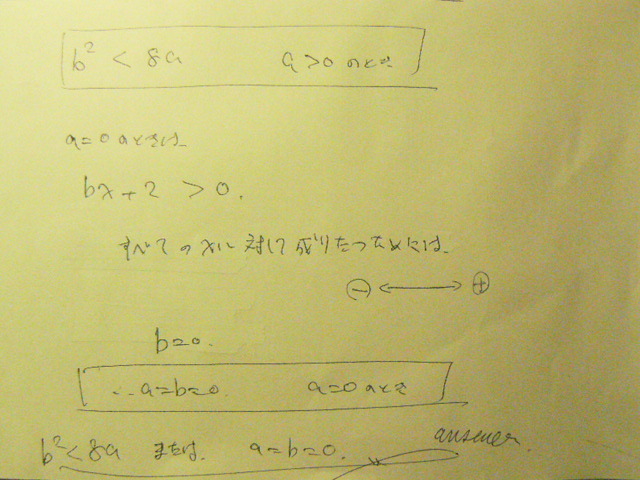 b² < 8a a>0 のとき
a=0 のときは
bx+2 > 0.
すべてのxに対して成りたつためには.
⊖ ⟷ ⊕
b=0.
∴ a=b=0. a=0 のとき
b²<8a または. a=b=0. answer.